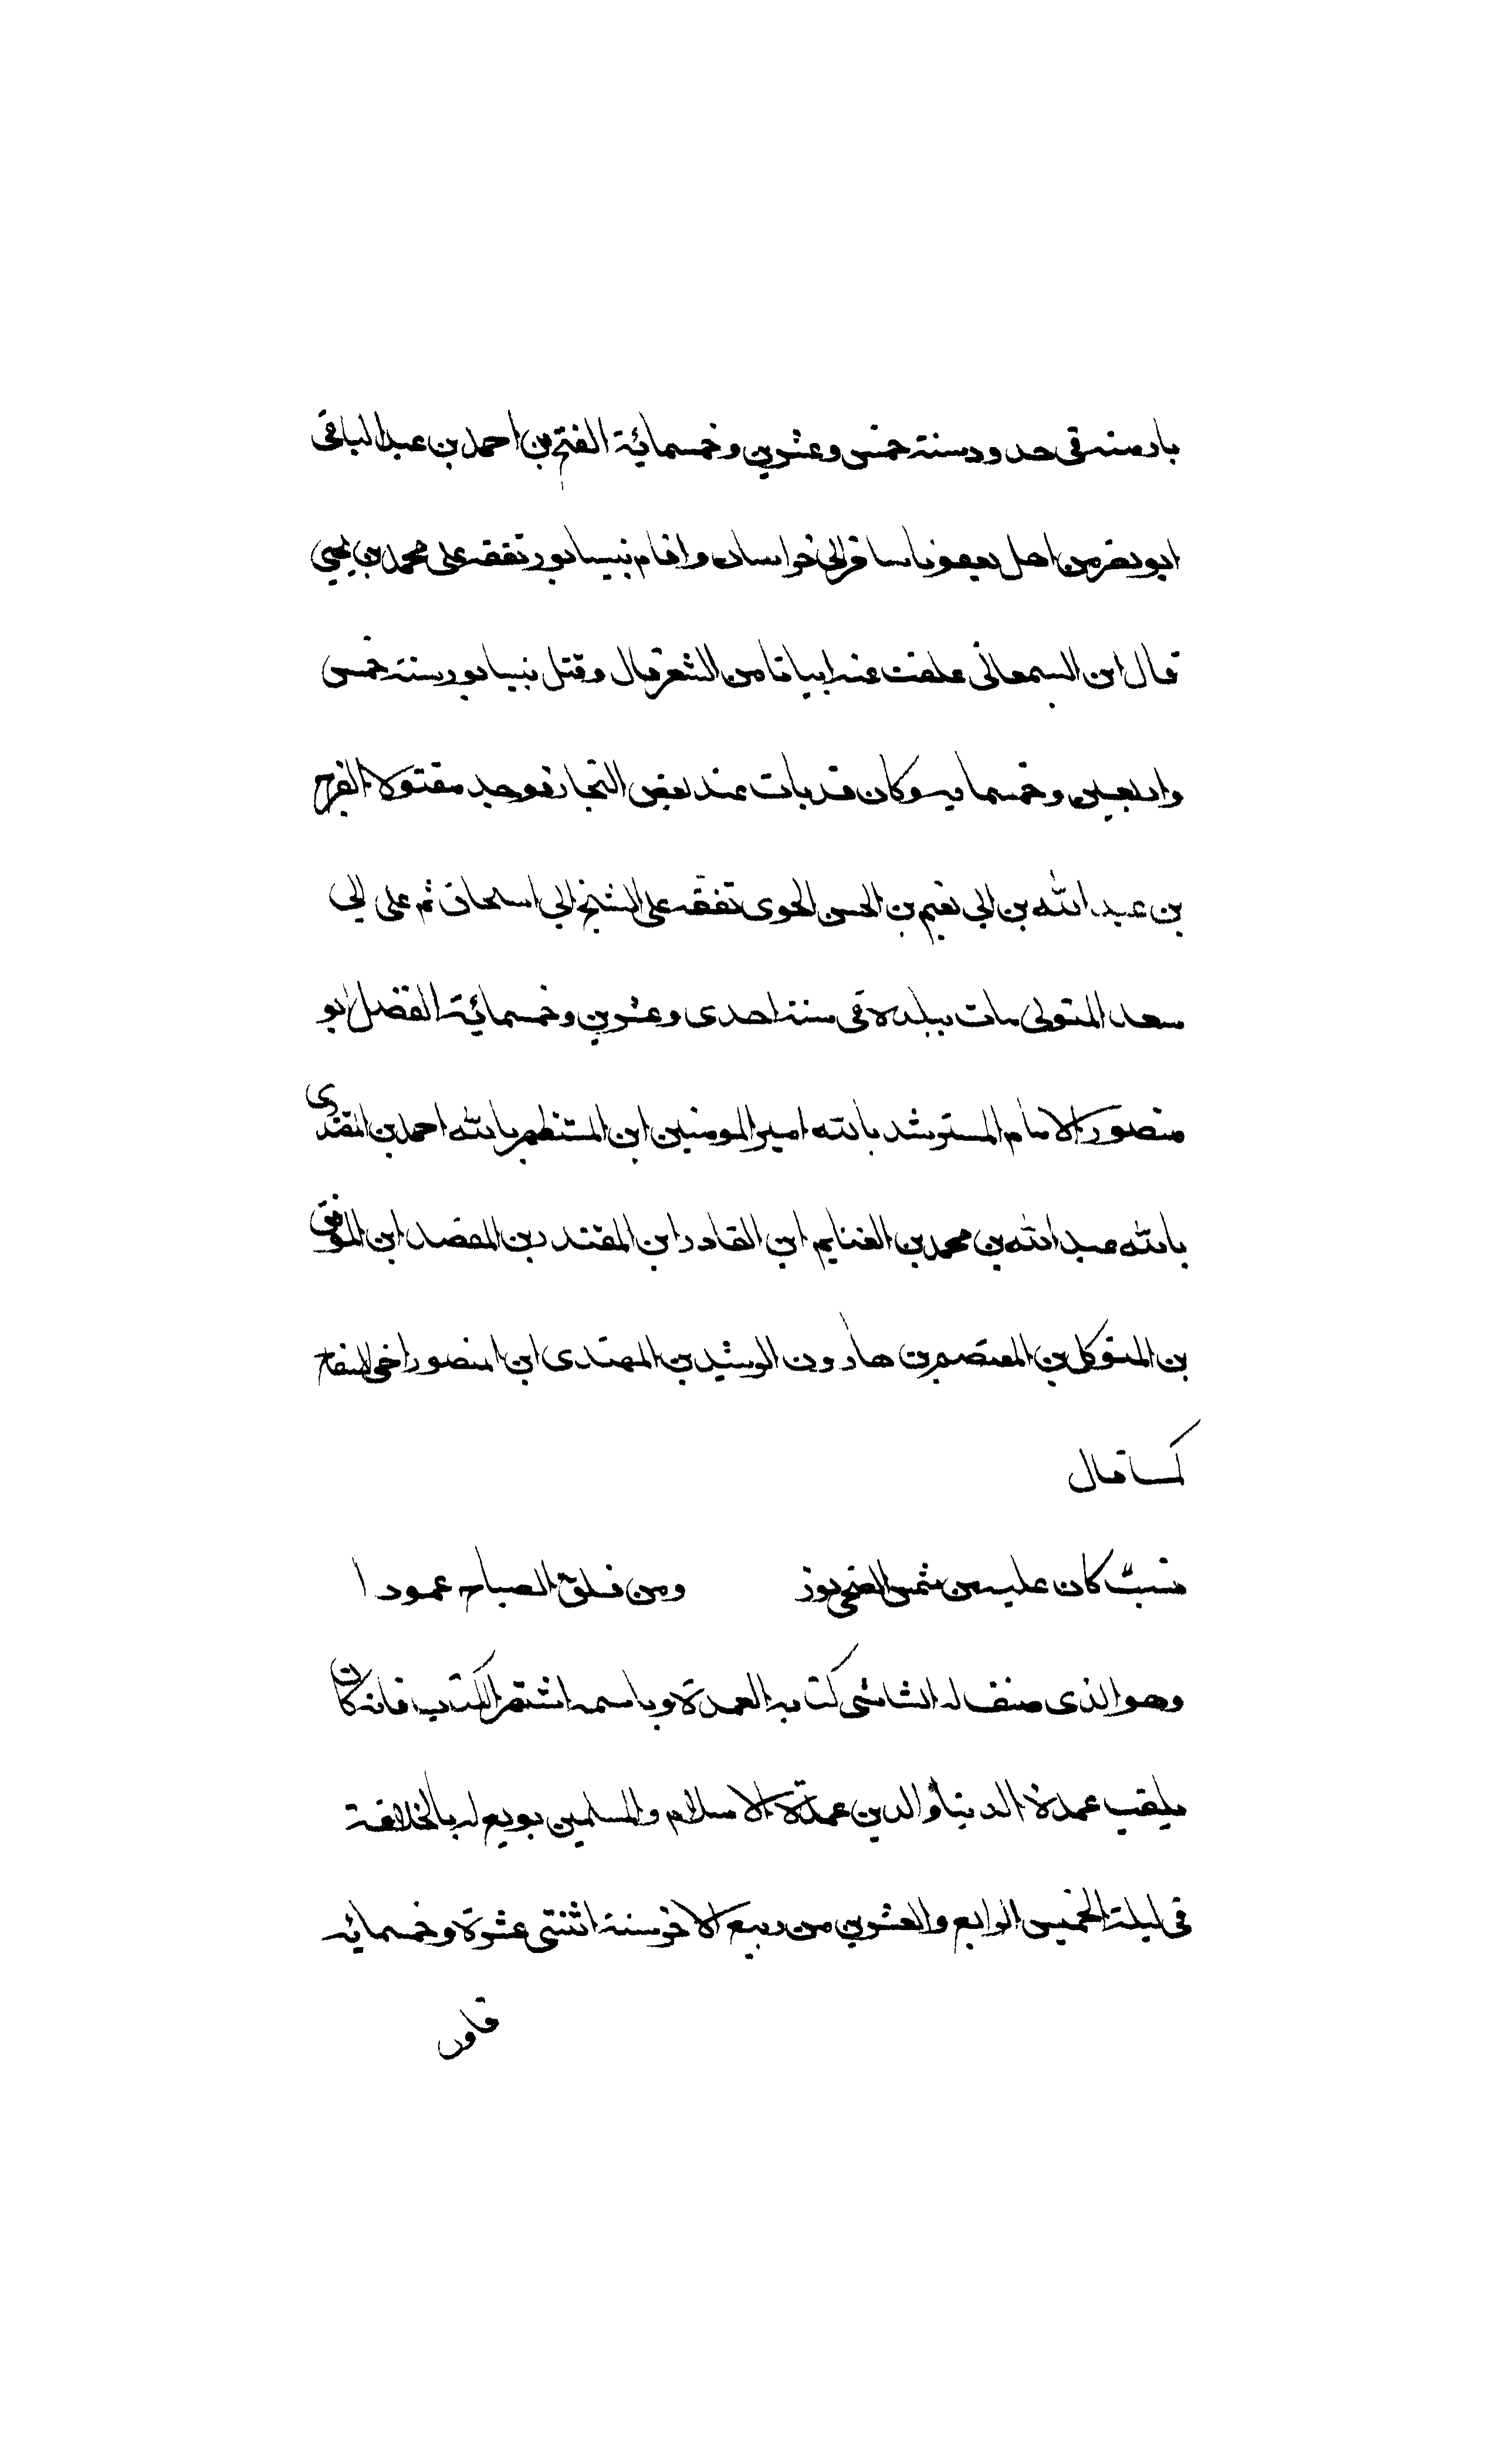 بارمنه في حدود سنة خمس وعشرين وخمسمائة الفتح بن احمد بن عبد الباقي
ابو نصر من اهل بعقوبا سافر الى خراسان واقام بنيسابور تفقه على محمد بن يحيى
قال ابن السمعاني علقت عنه ابياتا من الشعر قال وقتل بنيسابور سنة خمس
واربعين وخمسمايه وكان قد بات عند بعض التجار فوجد مقتولا الفرج
بن عبد الله بن ابي نعيم بن الحسن الخوى تفقه على الشيخ ابي اسحاق ثم على ابي
سعد المتولي مات ببلده في سنة احدى وعشرين وخمسمائة الفضل ابو
منصور الامام المسترشد بالله امير المومنين ابن المستظهر بالله احمد بن المقتدى
بالله عبد الله بن محمد بن الغنايم ابن القادر ابن المقتدر بن المعضد ابن الموفق
بن المتوكل بن المعتصم بن هارون الرشيد بن المهتدى ابن المنصور اخي السفاح
كما قال
نسبٌ كان عليه من شمس الضحى نور ومن فلق الصباح عمودا
وهو الذى صنف له الشاشى كتابه العمدة وباسمه اشتهر الكتاب فانه كان
يلقب عمدة الدنيا والدين عمدة الاسلام والمسلمين بويع له بالخلافة
في ليلة الخميس الرابع والعشرين من ربيع الاخر سنة اثنتى عشرة وخمسمايه